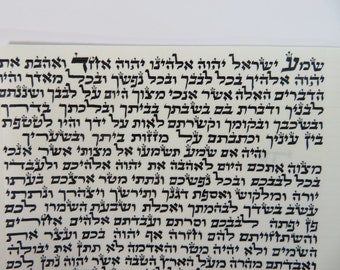 שמע ישראל יהוה אלהינו יהוה אחד ואהבת את
יהוה אלהיך בכל לבבך ובכל נפשך ובכל מאדך והיו
הדברים האלה אשר אנכי מצוך היום על לבבך ושננתם
לבניך ודברת בם בשבתך בביתך ובלכתך בדרך
ובשכבך ובקומך וקשרתם לאות על ידך והיו לטטפת
בין עיניך וכתבתם על מזזות ביתך ובשעריך
והיה אם שמע תשמעו אל מצותי אשר אנכי
מצוה אתכם היום לאהבה את יהוה אלהיכם ולעבדו
בכל לבבכם ובכל נפשכם ונתתי מטר ארצכם בעתו
יורה ומלקוש ואספת דגנך ותירשך ויצהרך ונתתי
עשב בשדך לבהמתך ואכלת ושבעת השמרו לכם
פן יפתה לבבכם וסרתם ועבדתם אלהים אחרים
והשתחויתם להם וחרה אף יהוה בכם ועצר את
השמים ולא יהיה מטר והאדמה לא תתן את יבולה
ואבדתם מהרה מעל הארץ הטבה אשר יהוה נתן לכם